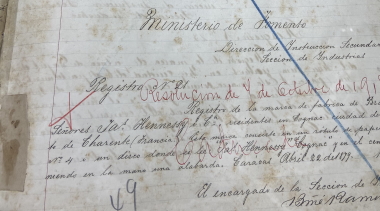 Ministerio de Fomento
Dirección de Instrucción Secundar
Sección de Industrias
Registro Nº 21
Resolución de 4 de Octubre de 191
Registro de la marca de fábrica de
Señores Jas. Hennessy & Cª, residentes en Cognac, ciudad de
to de Charente (Francia) dicha marca consiste en un rótulo de papel
Nº 4 i un disco donde se lee Jas. Hennessy Cognac y en el cen
mendo en la mano una alabarda. Caracas Abril 22 de 1879.
El encargado de la Sección de
49